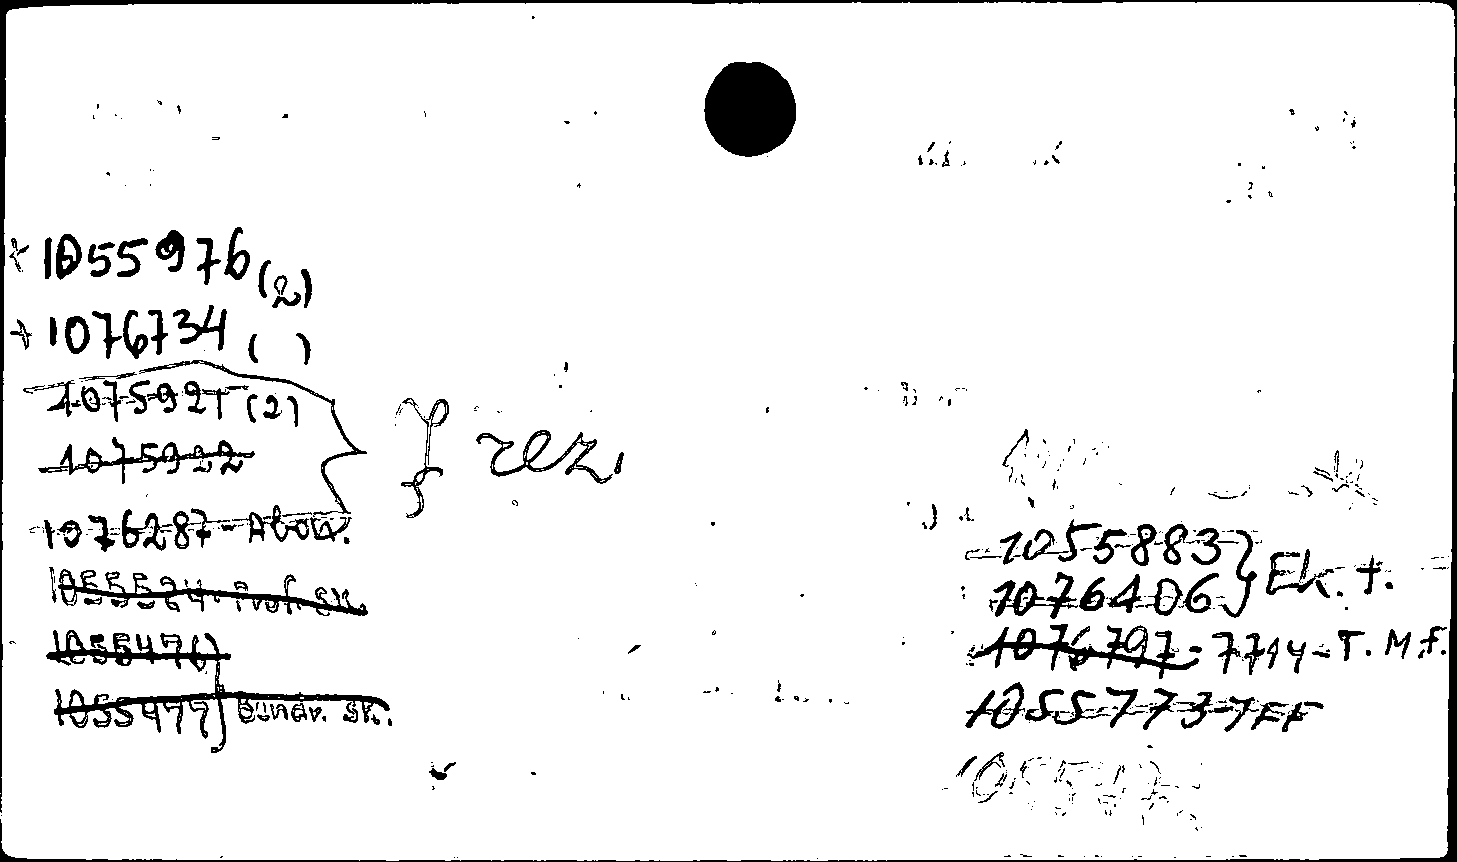 1055976 (2)
1076734 ( )
1075921 (2)
1075922
} rez.
1076287 - Abon.
1055524 - Prof. sk.
1055476
1055477 } Bundr. sk.
1055883
1076406 } Ek. f.
1076797 - 7714 - T. M. f.
1055773 - JFF